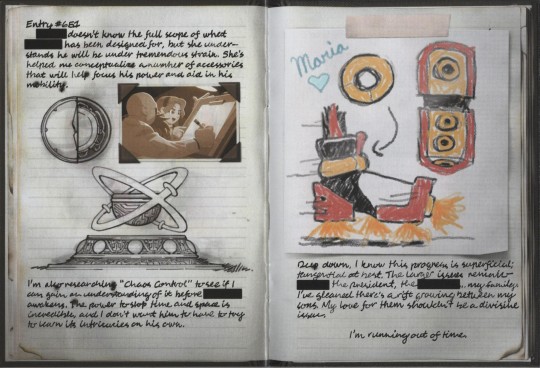 Entry #6E1
doesn't know the full scope of what
has been designed for, but she under-
stands he will be under tremendous strain. She's
helped me conceptualize a number of accessories
that will help focus his power and aid in his
mobility.
I'm also researching "Chaos Control" to see if I
can gain an understanding of it before
awakens. The power to stop time and space is
incredible, and I don't want him to have to try
to learn its intricacies on his own.
Maria
Deep down, I know this progress is superficial;
tangential at best. The larger issues remain—
the president, the
my family.
I've gleaned there's a rift growing between my
sons. My love for them shouldn't be a divisive
issue.
I'm running out of time.